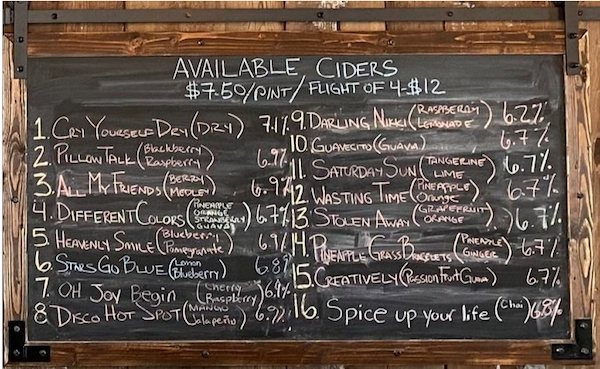 AVAILABLE CIDERS
$7.50/PINT/ FLIGHT OF 4-$12
1. CRY YOURSELF DRY (DRY) 7.1%
2. PILLOW TALK (Blackberry Raspberry) 6.9%
3. ALL MY FRIENDS (BERRY MEDLEY) 6.9%
4. DIFFERENT COLORS (PINEAPPLE ORANGE STRAWBERRY GUAVA) 6.7%
5. HEAVENLY SMILE (Blueberry Pomegranate) 6.9%
6. STARS GO BLUE (Lemon Blueberry) 6.8%
7. OH JOY Begin (Cherry Raspberry)
8. DISCO HOT SPOT (MANGO Jalapeño) 6.9%
9. DARLING NIKKI (RASPBERRY LEMONADE) 6.2%
10. GUAVECITO (GUAVA) 6.7%
11. SATURDAY SUN (TANGERINE LIME) 6.7%
12. WASTING TIME (PINEAPPLE Orange) 6.7%
13. STOLEN AWAY (GRAPEFRUIT ORANGE) 6.7%
14. PINEAPPLE GRASS BRACELETS (PINEAPPLE GINGER) 6.7%
15. CREATIVELY (PASSION FRUIT GUAVA) 6.7%
16. Spice up your life (Chai) 6.8%